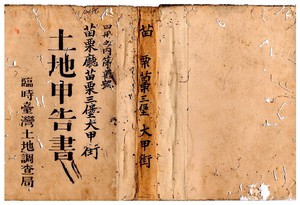 苗栗三堡大甲街
苗栗廳苗栗三堡大甲街
土地申告書
臨時臺灣土地調查局